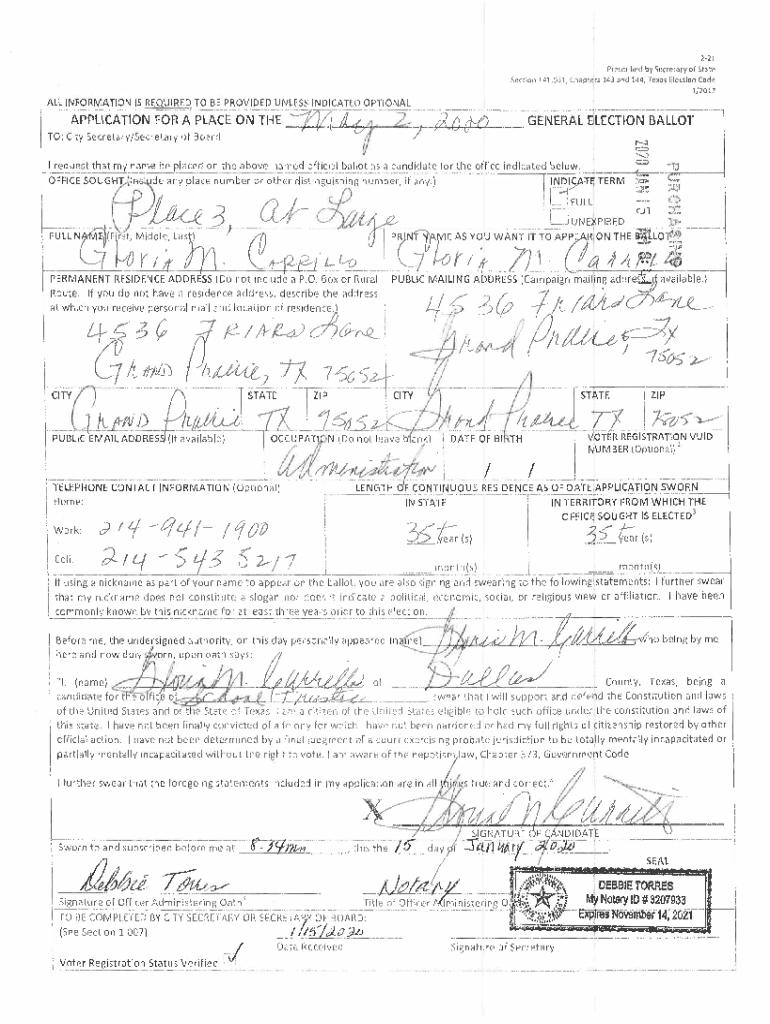 2-21
Prescribed by Secretary of State
Section 141.031, Chapters 143 and 144, Texas Election Code
1/2017
ALL INFORMATION IS REQUIRED TO BE PROVIDED UNLESS INDICATED OPTIONAL
APPLICATION FOR A PLACE ON THE May 2, 2020 GENERAL ELECTION BALLOT
TO: City Secretary/Secretary of Board
I request that my name be placed on the above named official ballot as a candidate for the office indicated below.
OFFICE SOUGHT (Include any place number or other distinguishing number, if any.) INDICATE TERM
Place 3, At Large
FULL
UNEXPIRED
2020 JAN 15
PURCHASING
FULL NAME (First, Middle, Last) PRINT NAME AS YOU WANT IT TO APPEAR ON THE BALLOT
Gloria M. Carrillo Gloria M. Carrillo
PERMANENT RESIDENCE ADDRESS (Do not include a P.O. Box or Rural PUBLIC MAILING ADDRESS (Campaign mailing address, if available.)
Route. If you do not have a residence address, describe the address
at which you receive personal mail and location of residence.)
4536 Friars Lane 4536 Friars Lane
Grand Prairie, TX 75052 Grand Prairie, Tx
75052
CITY STATE ZIP CITY STATE ZIP
Grand Prairie TX 75052 Grand Prairie TX 75052
PUBLIC EMAIL ADDRESS (If available) OCCUPATION (Do not leave blank) DATE OF BIRTH VOTER REGISTRATION VUID
NUMBER (Optional)
Administration / /
TELEPHONE CONTACT INFORMATION (Optional) LENGTH OF CONTINUOUS RESIDENCE AS OF DATE APPLICATION SWORN
Home: IN STATE IN TERRITORY FROM WHICH THE
OFFICE SOUGHT IS ELECTED3
Work: 214-941-1900 35+ year(s) 35+ year(s)
Cell: 214-543 5217 month(s) month(s)
If using a nickname as part of your name to appear on the ballot, you are also signing and swearing to the following statements: I further swear
that my nickname does not constitute a slogan nor does it indicate a political, economic, social, or religious view or affiliation. I have been
commonly known by this nickname for at least three years prior to this election.
Before me, the undersigned authority, on this day personally appeared (name) Gloria M. Carrillo who being by me
here and now duly sworn, upon oath says:
"I, (name) Gloria M. Carrillo of Dallas County, Texas, being a
candidate for the office of School Trustee swear that I will support and defend the Constitution and laws
of the United States and of the State of Texas. I am a citizen of the United States eligible to hold such office under the constitution and laws of
this state. I have not been finally convicted of a felony for which I have not been pardoned or had my full rights of citizenship restored by other
official action. I have not been determined by a final judgment of a court exercising probate jurisdiction to be totally mentally incapacitated or
partially mentally incapacitated without the right to vote. I am aware of the nepotism law, Chapter 573, Government Code.
I further swear that the foregoing statements included in my application are in all things true and correct."
X Gloria M Carrillo
SIGNATURE OF CANDIDATE
Sworn to and subscribed before me at , this the 15 day of January 2020
SEAL
Debbie Torres Notary
DEBBIE TORRES
My Notary ID # 3207933
Expires November 14, 2021
Signature of Officer Administering Oath Title of Officer Administering
TO BE COMPLETED BY CITY SECRETARY OR SECRETARY OF BOARD:
(See Section 1.007) 1/15/2020
Date Received Signature of Secretary
Voter Registration Status Verified √